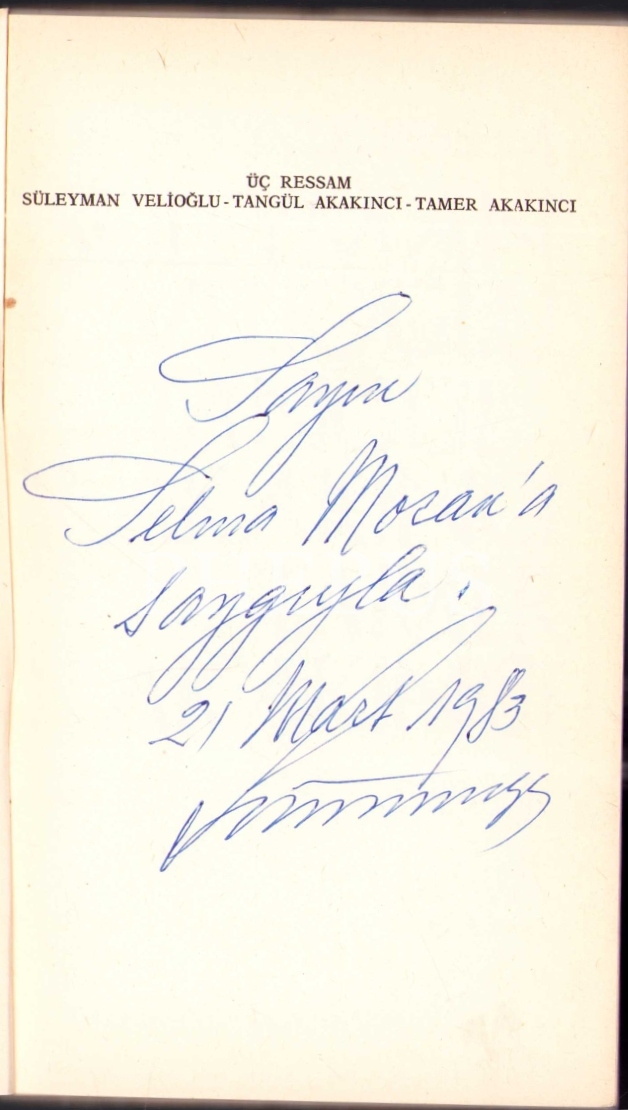 ÜÇ RESSAM
SÜLEYMAN VELİOĞLU-TANGÜL AKAKINCI-TAMER AKAKINCI
Sayın
Selma Mozan'a
saygıyla.
21 Mart 1983